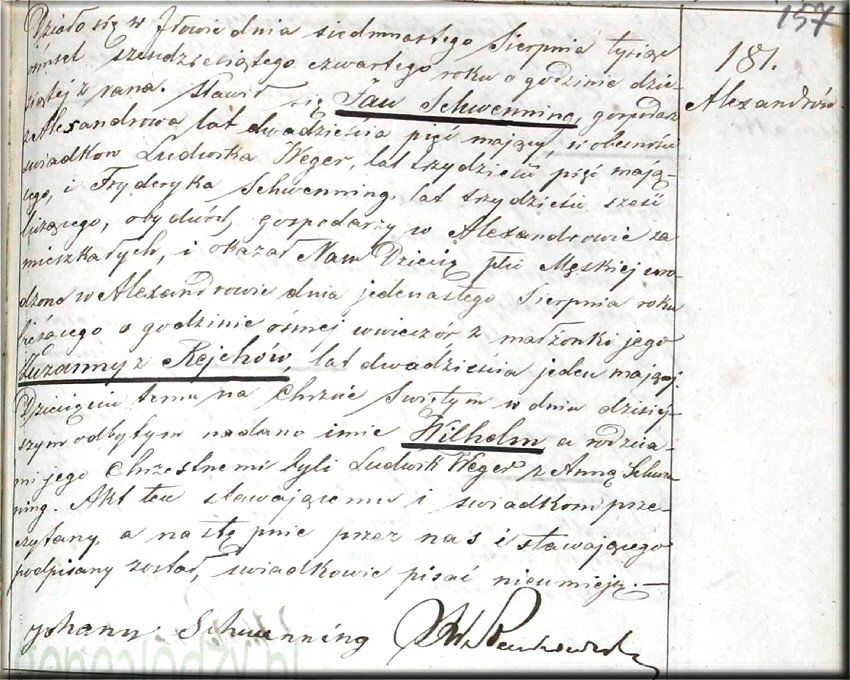 157
181.
Alexandrów
Działo się w Iłowie dnia siedmnastego Sierpnia tysiąc
ośmset sześdziesiątego czwartego roku o godzinie dzie-
siątej z rana. Stawił się Jan Schwenning, gospodarz
z Alexandrowa lat dwadzieścia pięć mający, w obecności
swiadków Ludwika Weger, lat trzydzieści pięć mają-
cego, i Fryderyka Schwenning, lat trzydzieści sześć
liczącego, obydwóch gospodarzy w Alexandrowie za
mieszkałych, i okazał Nam Dziecię płci Męskiej uro-
dzone w Alexandrowie dnia jedenastego Sierpnia roku
bieżącego o godzinie ósmej wieczór z małżonki jego
Zuzanny z Rejchów, lat dwadzieścia jeden mającej
Dziecięciu temu na Chrzcie Swiętym w dniu dzisiej-
szym odbytym nadano imie Wilhelm a rodzica-
mi jego Chrzestnemi byli Ludwik Weger z Anną Schwe
ning. Akt ten stawającemu i swiadkom prze-
czytany, a następnie przez nas i stawającego
podpisany został, swiadkowie pisać nieumieją.—
Johann Schwenning
genealodzy.pl